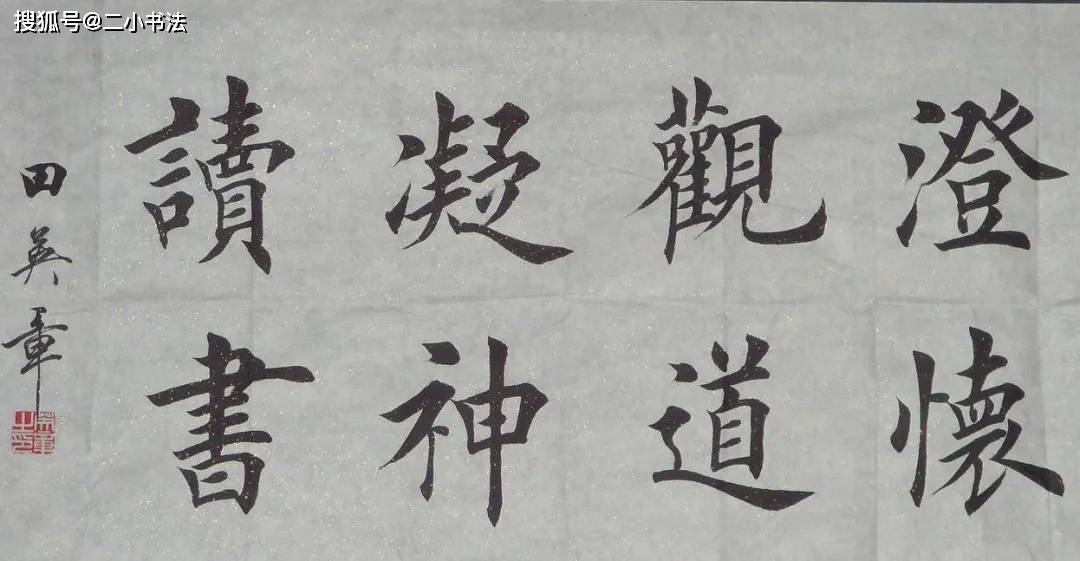 搜狐号@二小书法
澄懷
觀道
凝神
讀書
田英章